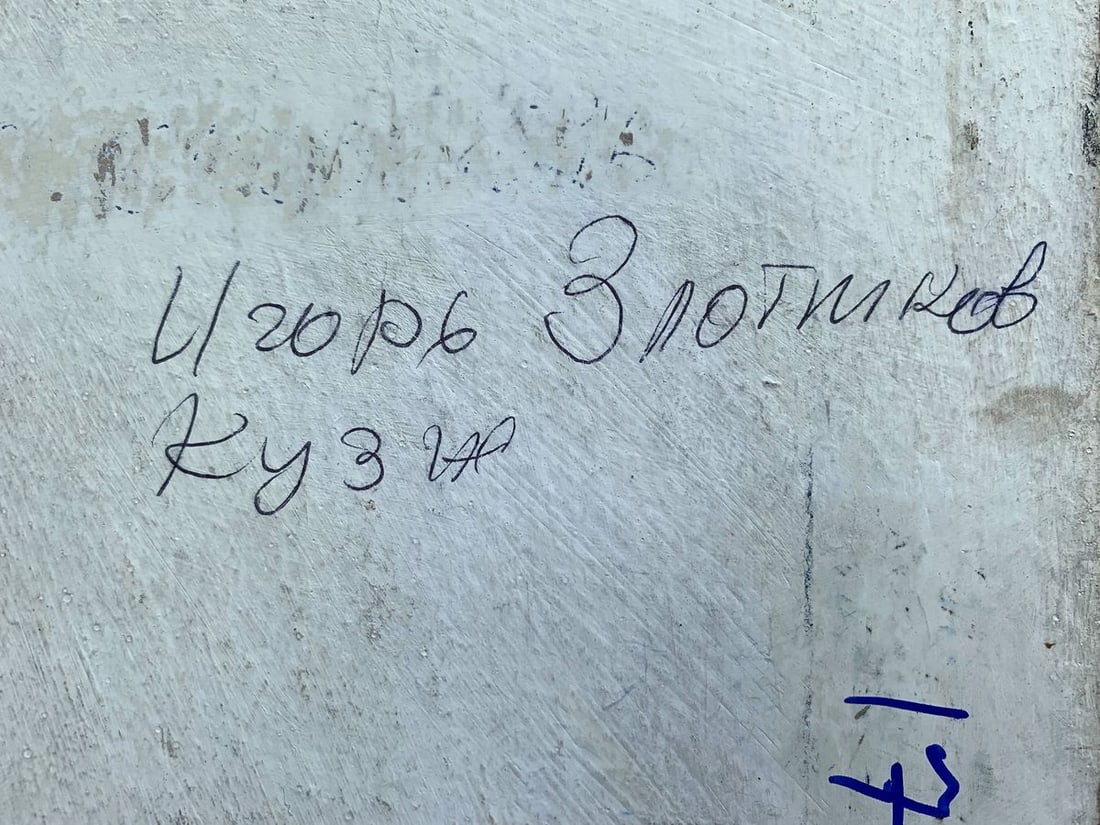 Игорь Злотников
Кузя